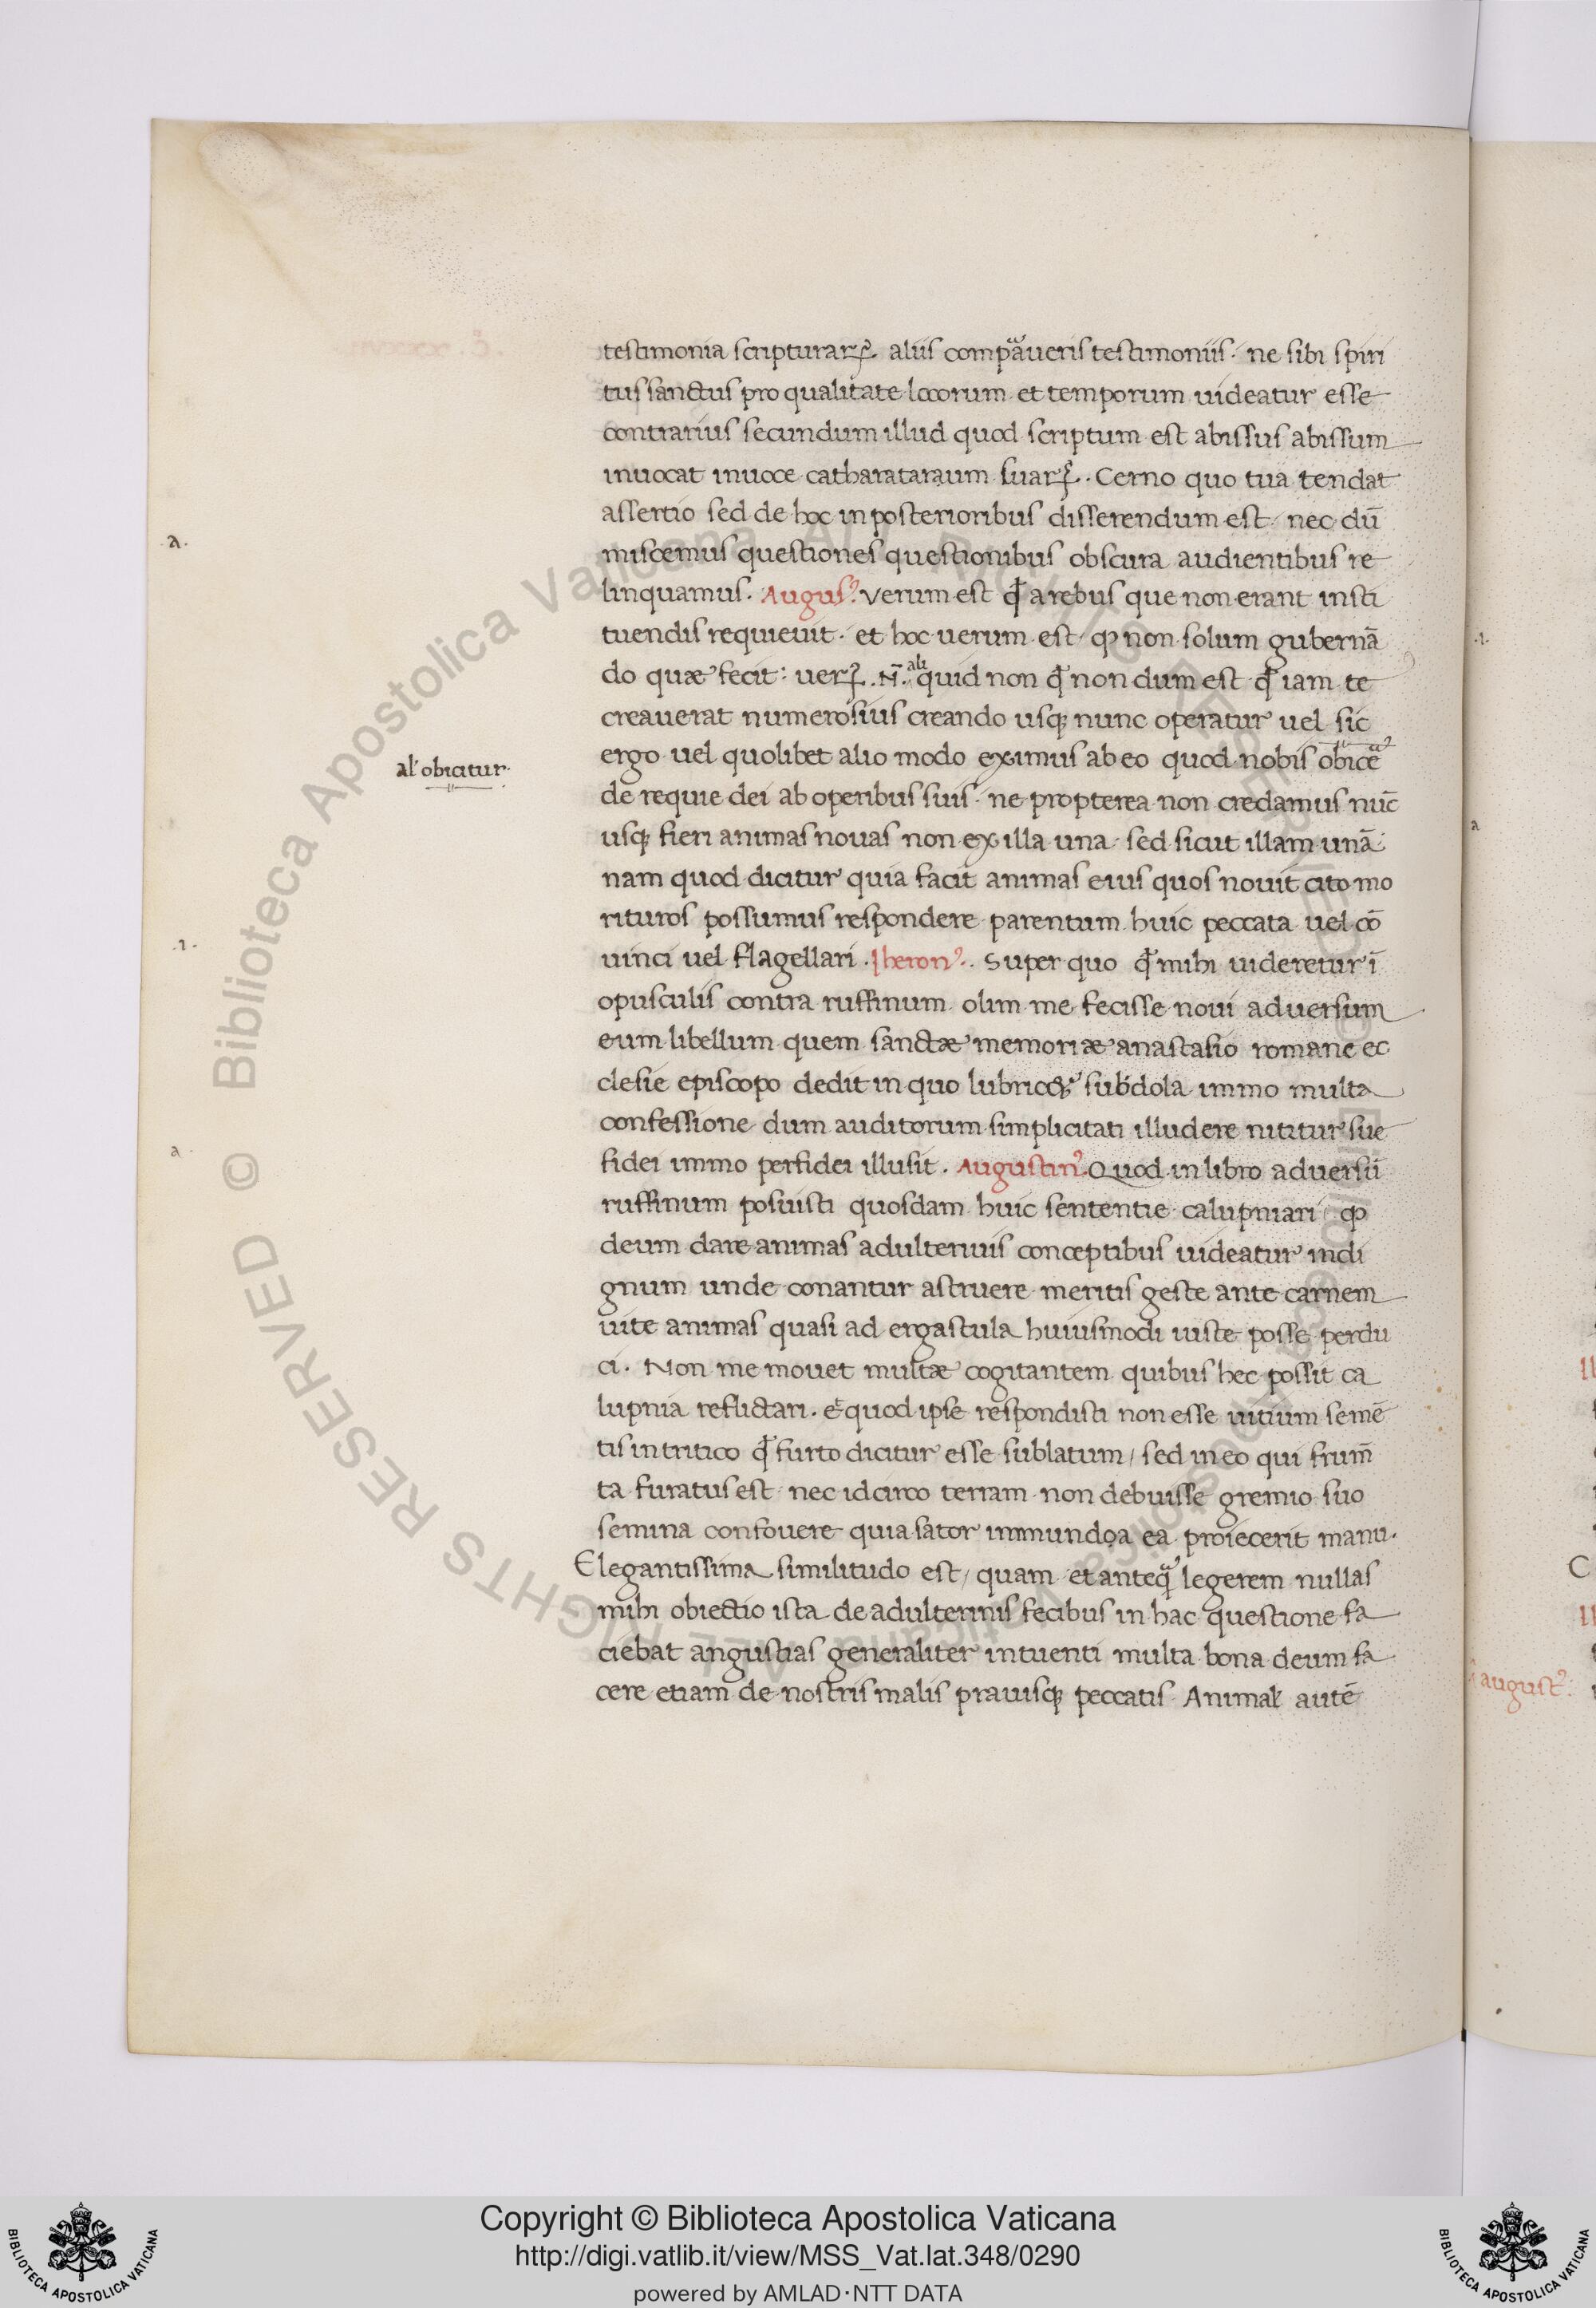 testimonia scripturaꝝ. aliis compaueris testimoniis. ne sibi spiri
tus sanctus pro qualitate locorum et temporum uideatur esse
contrarius secundum illud quod scriptum est abissus abissum
inuocat inuoce catharataraum suaꝝ. Cerno quo tua tendat
assertio sed de hoc in posterioribus disserendum est. nec dū
.a.
miscemus questiones questionibus obscura audientibus re
linquamus. Augus'. verum est qđ a rebus que non erant insti
tuendis requieuit. et hoc uerum est. ꝙ non solum gubernā
do quæ fecit: ueꝝ. N̄. aliquid non qđ non dum est qđ iam te
creauerat numerosius creando usqꝫ nunc operatur uel sic
ergo uel quolibet alio modo eximus ab eo quod nobis obice
al' obiciatur.
de requie dei ab operibus suis. ne propterea non credamus nūc
usqꝫ fieri animas nouas non ex illa una. sed sicut illam unā:
nam quod dicitur quia facit animas eius quos nouit cito mo
rituros possumus respondere parentum huic peccata uel cō
uinci uel flagellari. Iheron'. Super quo qđ mihi uideretur ī
.1.
opusculis contra ruffinum olim me fecisse noui aduersum
eum libellum quem sanctæ memoriæ anastasio romane ec
clesie episcopo dedit in quo subdola immo multa
confessione dum auditorum simplicitati illudere nititur sue
fidei immo perfidei illusit. Augustin'. Quod in libro aduersū
a.
ruffinum posuisti quosdam huic sententie calupniari ꝙ
deum dare animas adulterinis conceptibus uideatur indi
gnum unde conantur astruere meritis geste ante carnem
uite animas quasi ad ergastula huiusmodi iuste posse perdu
ci. Non me mouet multæ cogitantem quibus hec possit ca
lupnia reflictari. et quod ipse respondisti non esse uitium semē
tis in tritico qđ furto dicitur esse sublatum / sed in eo qui frum̄
ta furatus est. nec idcirco terram non debuisse gremio suo
semina confouere quia sator immundoa ea proiecerit manu.
Elegantissima similitudo est / quam et anteqͣ legerem nullas
mihi obiectio ista de adulterinis fecibus in hac questione fa
ciebat angustias generaliter intuenti multa bona deum fa
cere etiam de nostris malis prauisqꝫ peccatis Animal autē
.1.
a
august'.
Copyright © Biblioteca Apostolica Vaticana
http://digi.vatlib.it/view/MSS_Vat.lat.348/0290
powered by AMLAD·NTT DATA
BIBLIOTECA APOSTOLICA VATICANA
BIBLIOTECA APOSTOLICA VATICANA
© Biblioteca Apostolica Vaticana ALL RIGHTS RESERVED
© Biblioteca Apostolica Vaticana ALL RIGHTS RESERVED